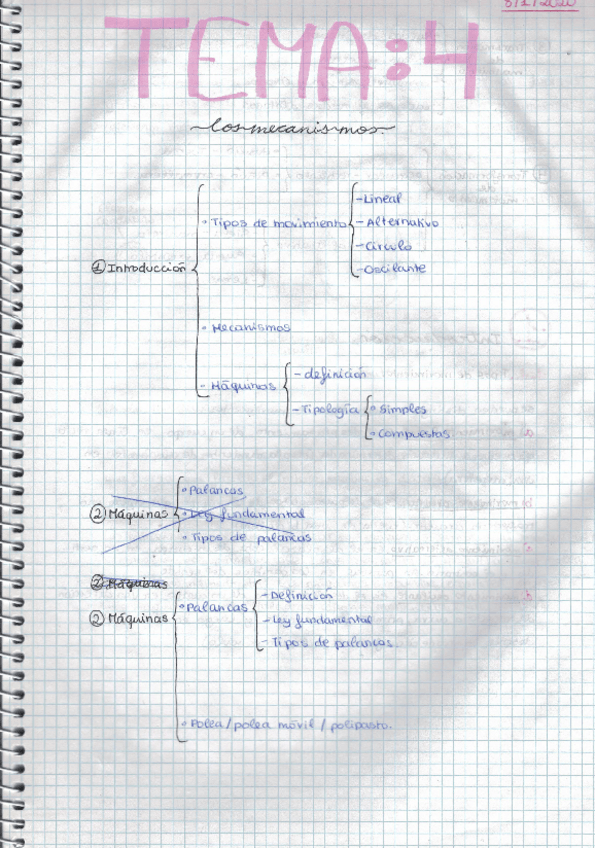 8/1/2020
TEMA:4
Los mecanismos.
① Introducción
• Tipos de movimiento
- Lineal
- Alternativo
- Circulo
- Oscilante
• Mecanismos
- Máquinas
- definición
- Tipología
• Simples
• Compuestas
② Máquinas
• Palancas
• Ley fundamental
• Tipos de palancas
② Máquinas
② Máquinas
• Palancas
- Definición
- Ley fundamental
- Tipos de palancas.
• Polea/polea móvil / polipasto.